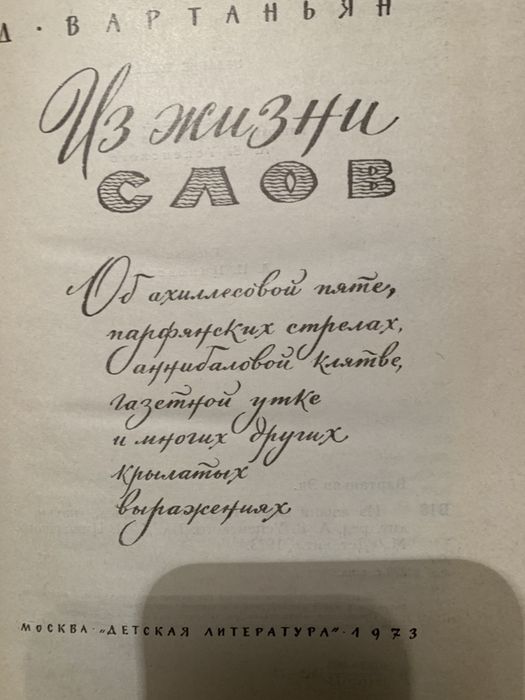 Д · ВАРТАНЬЯН
Из жизни
СЛОВ
Об ахиллесовой пяте,
парфянских стрелах,
аннибаловой клятве,
газетной утке
и многих других
крылатых
выражениях
МОСКВА · „ДЕТСКАЯ ЛИТЕРАТУРА" · 1973